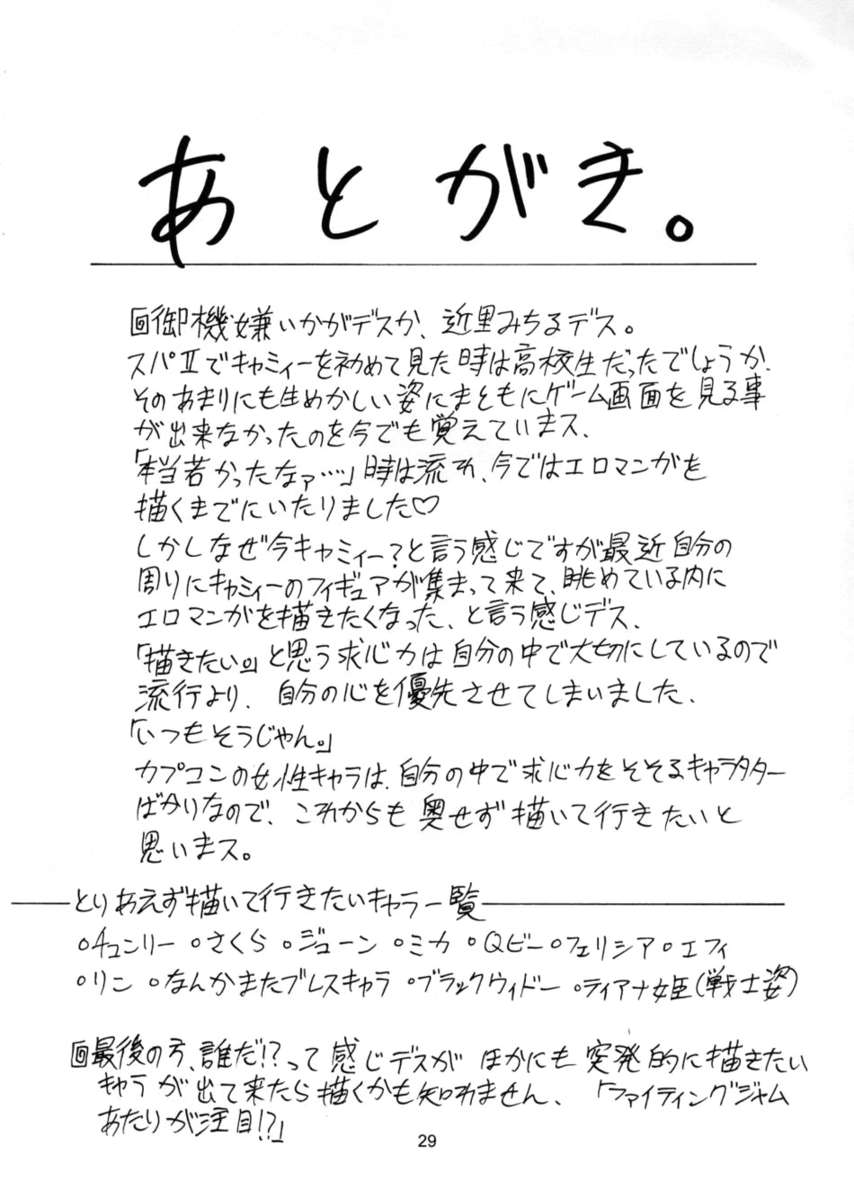 あとがき。
回御機嫌いかがデスか、近里みちるデス。
スパⅡでキャミィーを初めて見た時は高校生だったでしょうか、
そのあまりにも生めかしい姿にまともにゲーム画面を見る事
が出来なかったのを今でも覚えていまス、
「本当若かったなァ…」時は流れ、今ではエロマンガを
描くまでにいたりました♡
しかしなぜ今キャミィー?と言う感じですが最近自分の
周りにキャミィーのフィギュアが集まって来て、眺めている内に
エロマンガを描きたくなった、と言う感じデス、
「描きたい。」と思う求心力は自分の中で大切にしているので
流行より、自分の心を優先させてしまいました、
「いつもそうじゃん。」
カプコンの女性キャラは、自分の中で求心力をそそるキャラタター
ばかりなので、これからも奥せず描いて行きたいと
思いまス。
とりあえず描いて行きたいキャラ一覧
○チュンリー ○さくら ○ジューン ○ミカ ○Qビー ○フェリシア ○エフィ
○リン ○なんかまたブレスキャラ ○ブラックウィドー ○ティアナ姫(戦士姿)
回最後の方、誰だ!?って感じデスがほかにも突発的に描きたい
キャラが出て来たら描くかも知れません、「ファイティングジャム
あたりが注目!?」
29